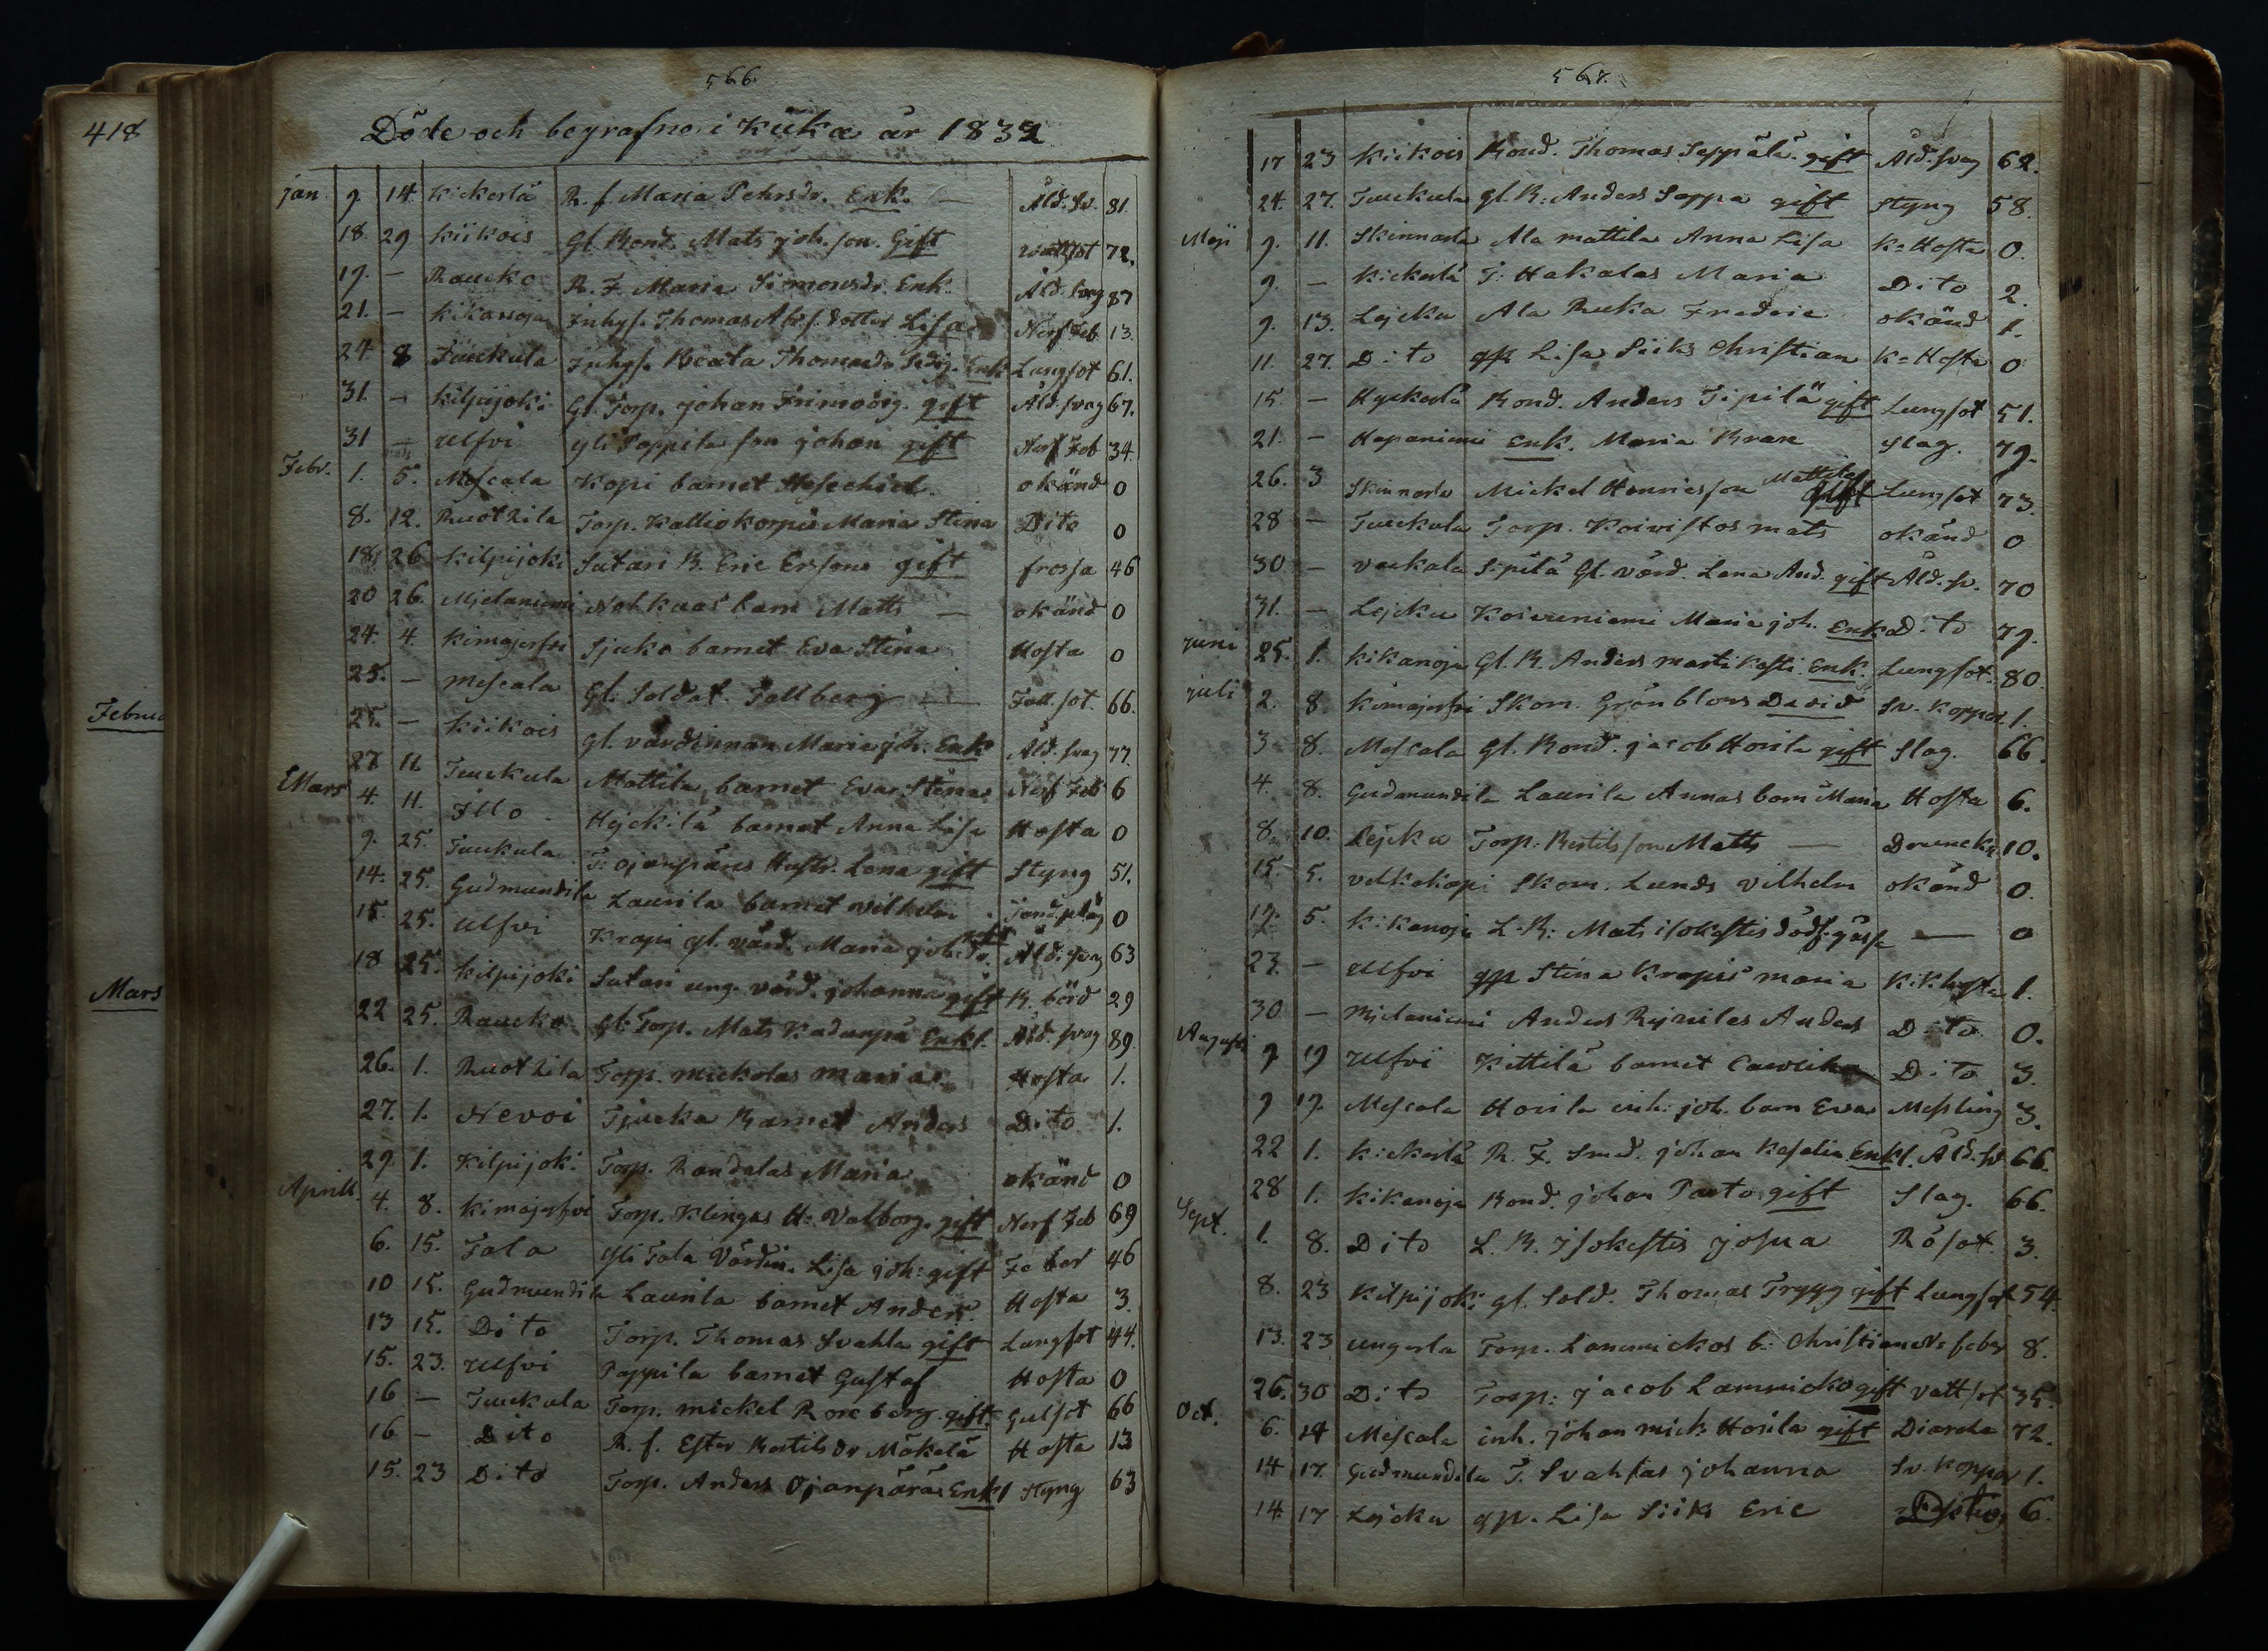 418
Februa
Mars
566
Döde och begrafne i Kiika år 1832
jan. 9. 14. Kickerlä R. f. Maria Pehrsdr. Enk. — Åld. Sv. 81.
18. 29 Kiikois Gl. Bond. Mats joh. son. Gift wattsot 72.
19. — Raucko R. F. Maria Simonsdr. Enk. Åld. svag 87
21. — Kikanoja Inhys. Thomas Abr. s. dotter Lisa Nerf Feb 13.
24 8 Tuckula Inhys. Beata Thomasdr Enk Lungsot 61.
31. — Kilpijoki Gl. Torp. johan gift Åld. svag 67.
31 — Ulfvi yli Pappila son johan gift Nerf Feb 34.
Febr. 1. 5. Mescala Kopi barnet okänd 0
8. 12. Ruotzila Torp. Kalliokorpis Maria Stina Dito 0
18 26 Kilpijoki Sutari B. Eric Ersson gift frossa 46
20 26. Mjelaniemi Nohkuas barn Matts — okänd 0
24. 4. Kimajerfvi Sjuko barnet Eva Stina Hosta 0
25. — Mescala Gl. Soldat. Fallberg — Fall. sot. 66.
25. — Kiikois Gl. värdinnan Maria joh: Enk Åld. svag 77.
27. 11 Tuckula Mattila barnet Eva Stina Nerf Feb 6
Mars 4. 11. Illo Hejckilä barnet Anna Lisa Hosta 0
9. 25. Tuckula T. Ojanpäräs Hustr. Lena gift Styng 51.
14. 25. Gudmundila Laurila barnet Vilhelm 0
15. 25. Ulfvi Krapi gl. värd. Maria joh. dr. gift Åld. svag 63
18 25. Kilpijoki Sutari ung. värd. johanna gift B. börd 29
22 25. Raucko Gl. Torp. Mats Enkl. Åld. svag 89.
26. 1. Ruotzila Torp. mickolas maria Hosta 1.
27. 1. Nevoi Tjucka Barnet Anders Dito 1.
29. 1. Kilpijoki Torp. Randalas Maria okänd 0
Aprill 4. 8. Kimajerfvi Torp. Klingas H: Valborg. gift Nerf Feb 69
6. 15. Tala yli Tala Värdin. Lisa joh: gift Feber 46
10 15. Gudmundila Laurila barnet Anders. Hosta 3.
13 15. Dito Torp. Thomas Svahla gift Lungsot 44.
15. 23. Ulfvi Pappila barnet Gustaf Hosta 0
16 — Tuckula Torp. mickel Rosberg. gift Gulsot 66
16 — Dito R. f. Ester Bertilsdr Mäkelä Hosta 13
15. 23 Dito Torp. Anders Ojanpäräs Enkl Styng 63
567.
17 23 Kiikois Bond. Thomas Seppälä. gift Åld. svag 62.
24. 27. Tuckula gl. B: Anders Soppa gift Styng 58.
Maji 9. 11. Skinnarla Ala mattila Anna Lisa K=Hosta 0.
9. — Kickerlä T: Hakalas Maria Dito 2.
9. 13. Lejcku Ala Ruka Fredric okänd 1.
11. 27. Dito gp Lisa Siiks Christian K=Hosta 0
15. — Hyckerlä Bond. Anders Sipilä gift Lungsot 51.
21. — Haponiemi Enk. Maria Slag. 79.
26. 3 Skinnarla Mickel Henricsson Mattila gift Lungsot 73.
28 — Tuckula Torp. Koivistos mats okänd 0
30 — vackala Sipilä Gl. värd. Lena And. gift Åld. sv. 70
31. — Lejcku Koivuniemi Maria joh. Enk Dito 79.
juni 25. 1. Kikanoja Gl. B. Anders martikesti Enk. Lungsot. 80.
juli 2. 8. Kimajerfvi Skom. Grönbloms David Sv. Koppor 1.
3 8. Mescala Gl. Bond. jacob Horila gift Slag. 66.
4. 8. Gudmundila Laurila Annas barn Maria Hosta 6.
8. 10. Lejcku Torp. Bertilsson Matts — Drunck 10.
15. 5. Skom. Lunds Vilhelm okänd 0.
19. 5. Kikanoja L. B: Mats isokestis dödf. gåsse — 0
23. — Ulfvi gp Stina Krapis maria Kikhosta 1.
30 — Mjelaniemi Anders Anders Dito 0.
Augusti 9 19 Ulfvi Kittilä barnet Carolina Dito 3.
9 19. Mescala Horila inh: joh. barn Eva Messling 3.
22 1. Kickerlä R. F. Smed. johan Enkl. Åld. sv 66.
28 1. Kikanoja Bond. johan Parto gift Slag. 66.
Sept. 1. 8. Dito L. B. Isokestis josua Rösot. 3.
8. 23 Kilpijoki gl. Sold. Thomas Trygg gift Lungsot 54.
13. 23 ungerla Torp. Lammickos b: Christian N: feber 8.
26. 30 Dito Torp: jacob Lammicko gift vattsot 35.
Oct. 6. 14 Mescala inh. johan mick: Horila gift Diareha 72.
14 17. Gudmundila T. Svahlas johanna Sv. Koppor 1.
14. 17 Lejcku gp. Lisa Siiks Eric 6.